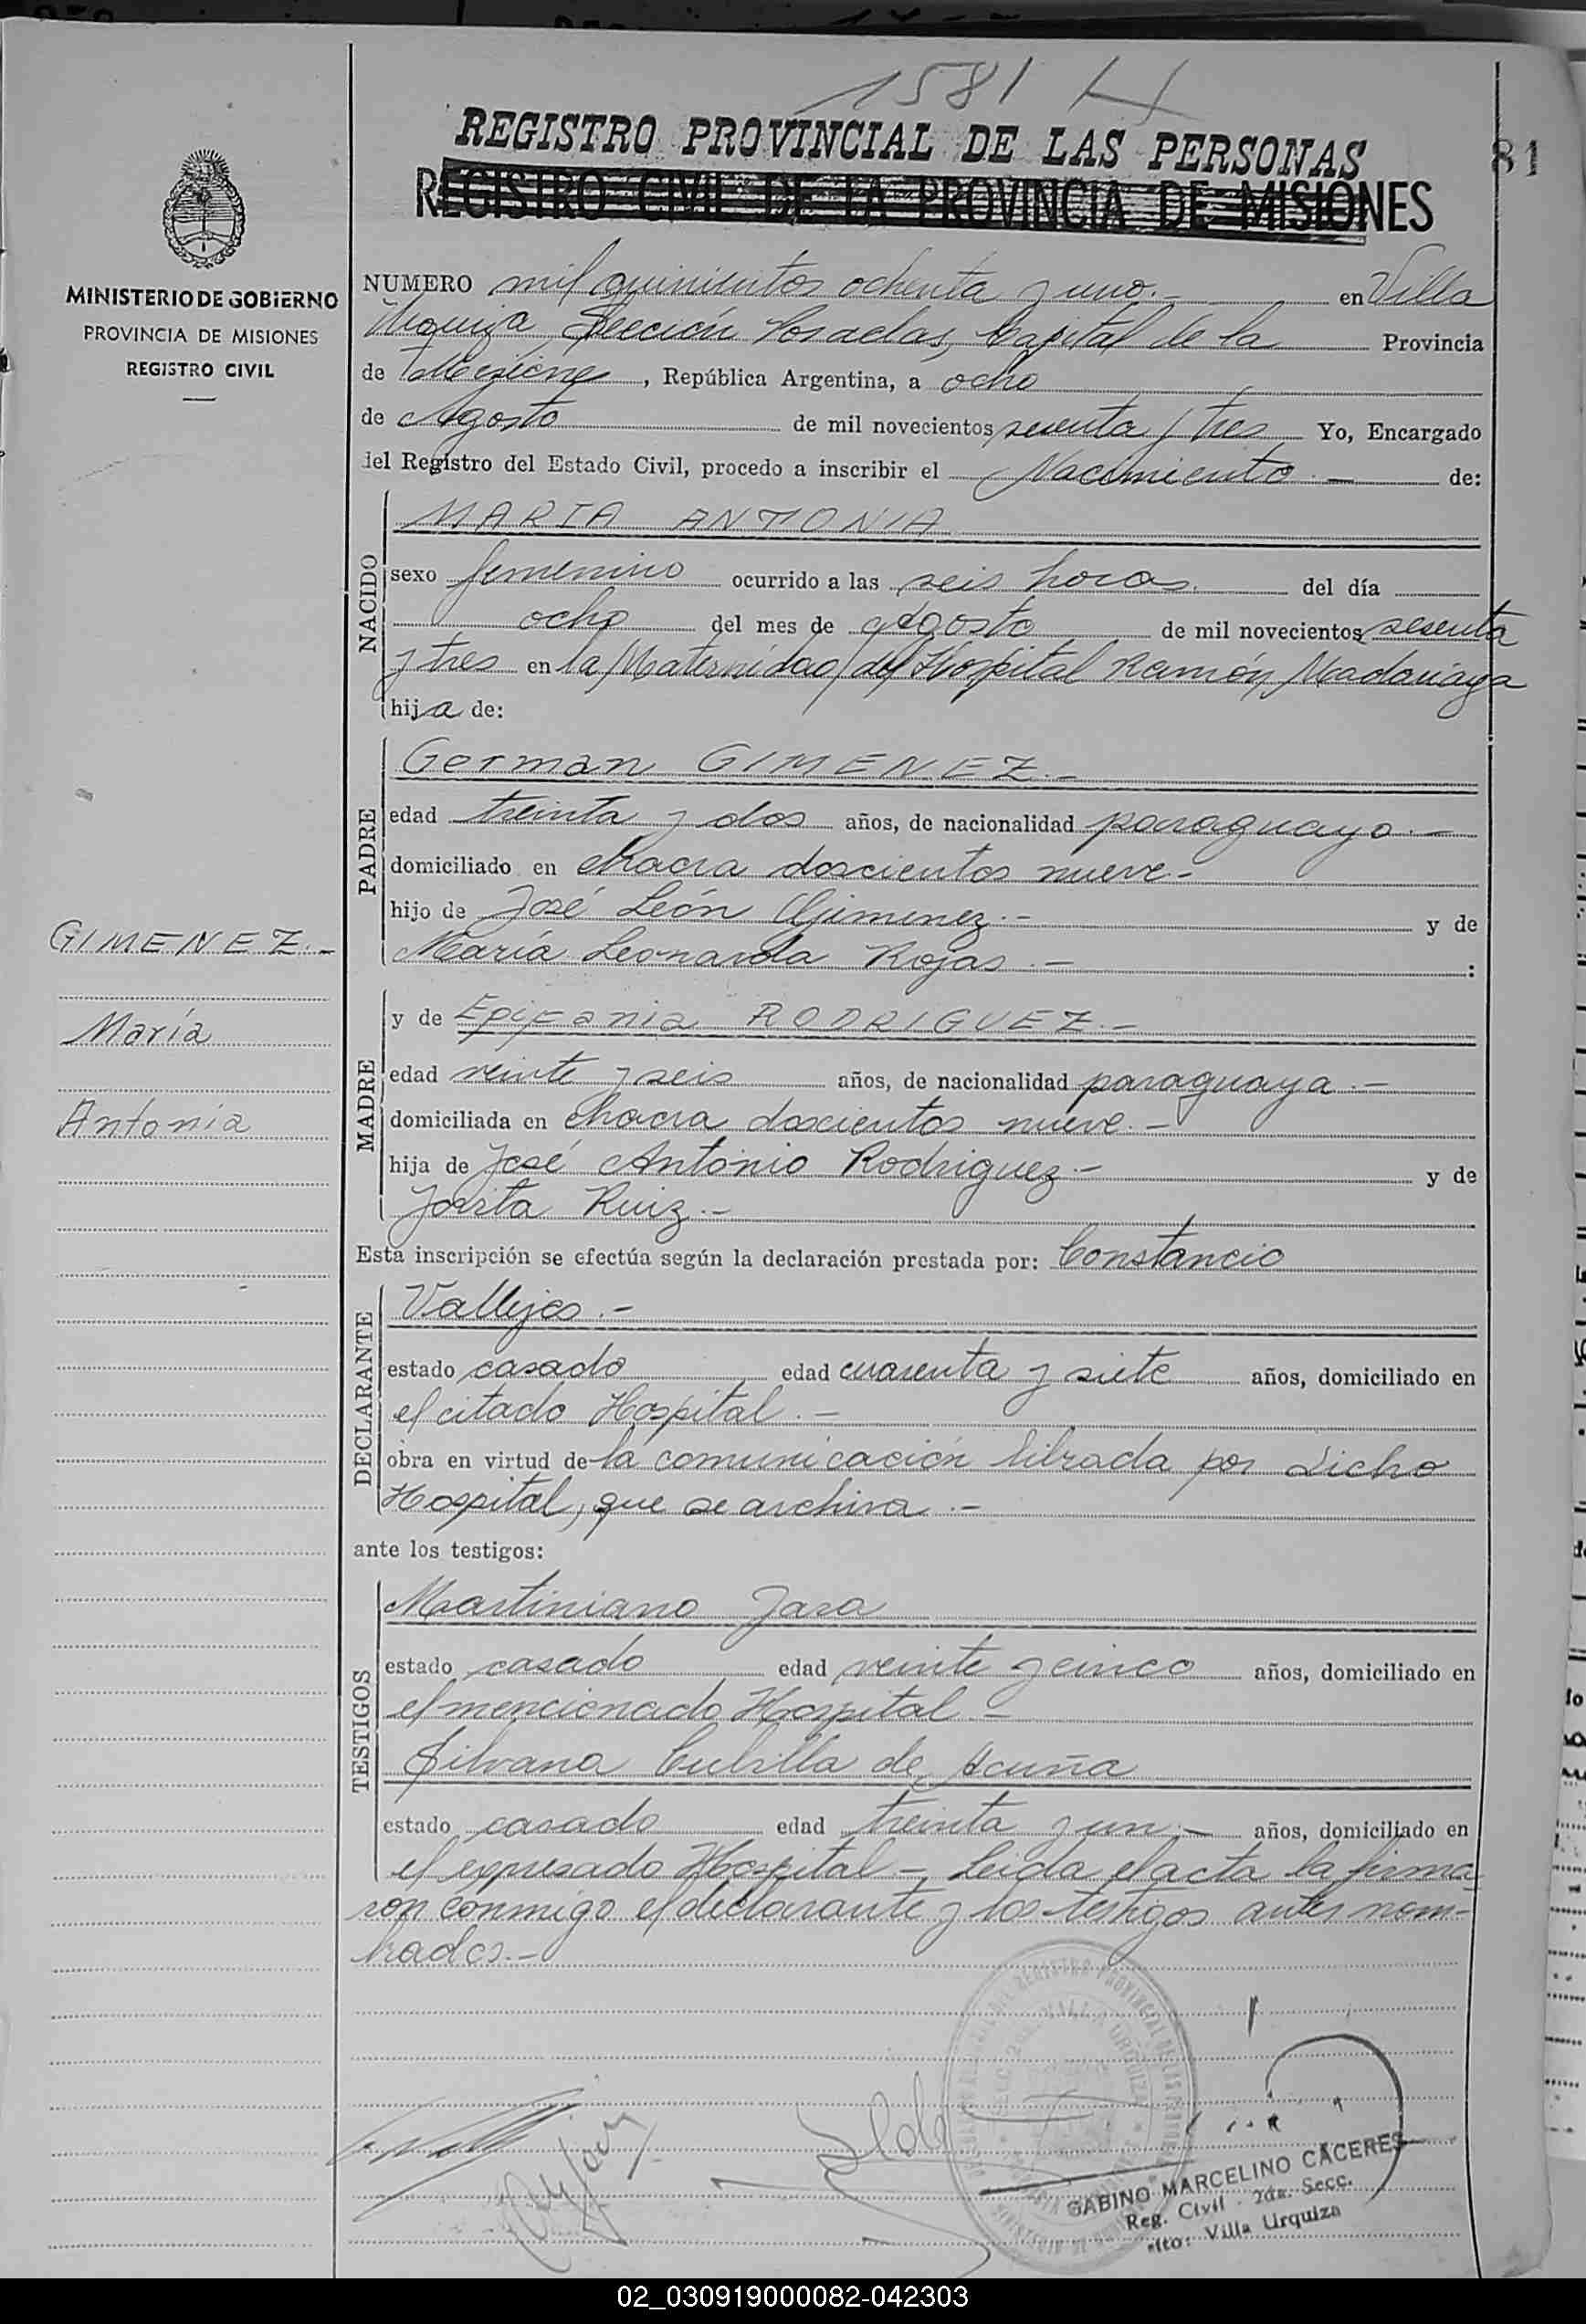 1581
REGISTRO PROVINCIAL DE LAS PERSONAS
81
REGISTRO CIVIL DE LA PROVINCIA DE MISIONES
MINISTERIO DE GOBIERNO
PROVINCIA DE MISIONES
REGISTRO CIVIL
NUMERO mil quinientos ochenta y uno.- en Villa
Urquiza Sección Posadas, Capital de la Provincia
de Misiones, República Argentina, a ocho
de Agosto de mil novecientos sesenta y tres Yo, Encargado
del Registro del Estado Civil, procedo a inscribir el Nacimiento.- de:
NACIDO
MARIA ANTONIA
sexo femenino ocurrido a las seis horas. del día
ocho del mes de agosto de mil novecientos sesenta
y tres en la Maternidad del Hospital Ramón Madariaga
hija de:
PADRE
German GIMENEZ.-
edad treinta y dos años, de nacionalidad paraguayo.-
domiciliado en chacra doscientos nueve-
hijo de José León Gimenez.- y de
María Leonarda Rojas.- :
GIMENEZ.-
María
Antonia
MADRE
y de Epifania RODRIGUEZ.-
edad veinte y seis años, de nacionalidad paraguaya.-
domiciliada en chacra doscientos nueve.-
hija de José Antonio Rodriguez.- y de
Ruiz.-
Esta inscripción se efectúa según la declaración prestada por: Constancio
DECLARANTE
Vallejos.-
estado casado edad cuarenta y siete años, domiciliado en
el citado Hospital.-
obra en virtud de la comunicación librada por dicho
Hospital, que se archiva.-
ante los testigos:
TESTIGOS
Martiniano Jara
estado casado edad veinte y cinco años, domiciliado en
el mencionado Hospital-
Silvana Cubilla de Acuña
estado casado edad treinta y un.- años, domiciliado en
el expresado Hospital- Leida el acta la firma
ron conmigo el declarante y los testigos antes nom-
brados.-
GABINO MARCELINO CACERES
Reg. Civil - 2da. Secc.
Villa Urquiza
02_030919000082-042303